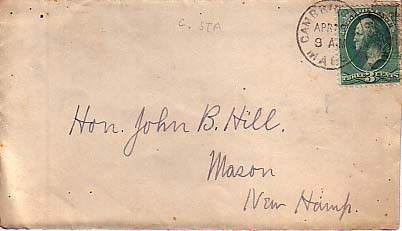 C. STA
CAMBRI
APR
9 A.M
MASS
THREE 3 CENTS
Hon. John B. Hill.
Mason
New Hamp.